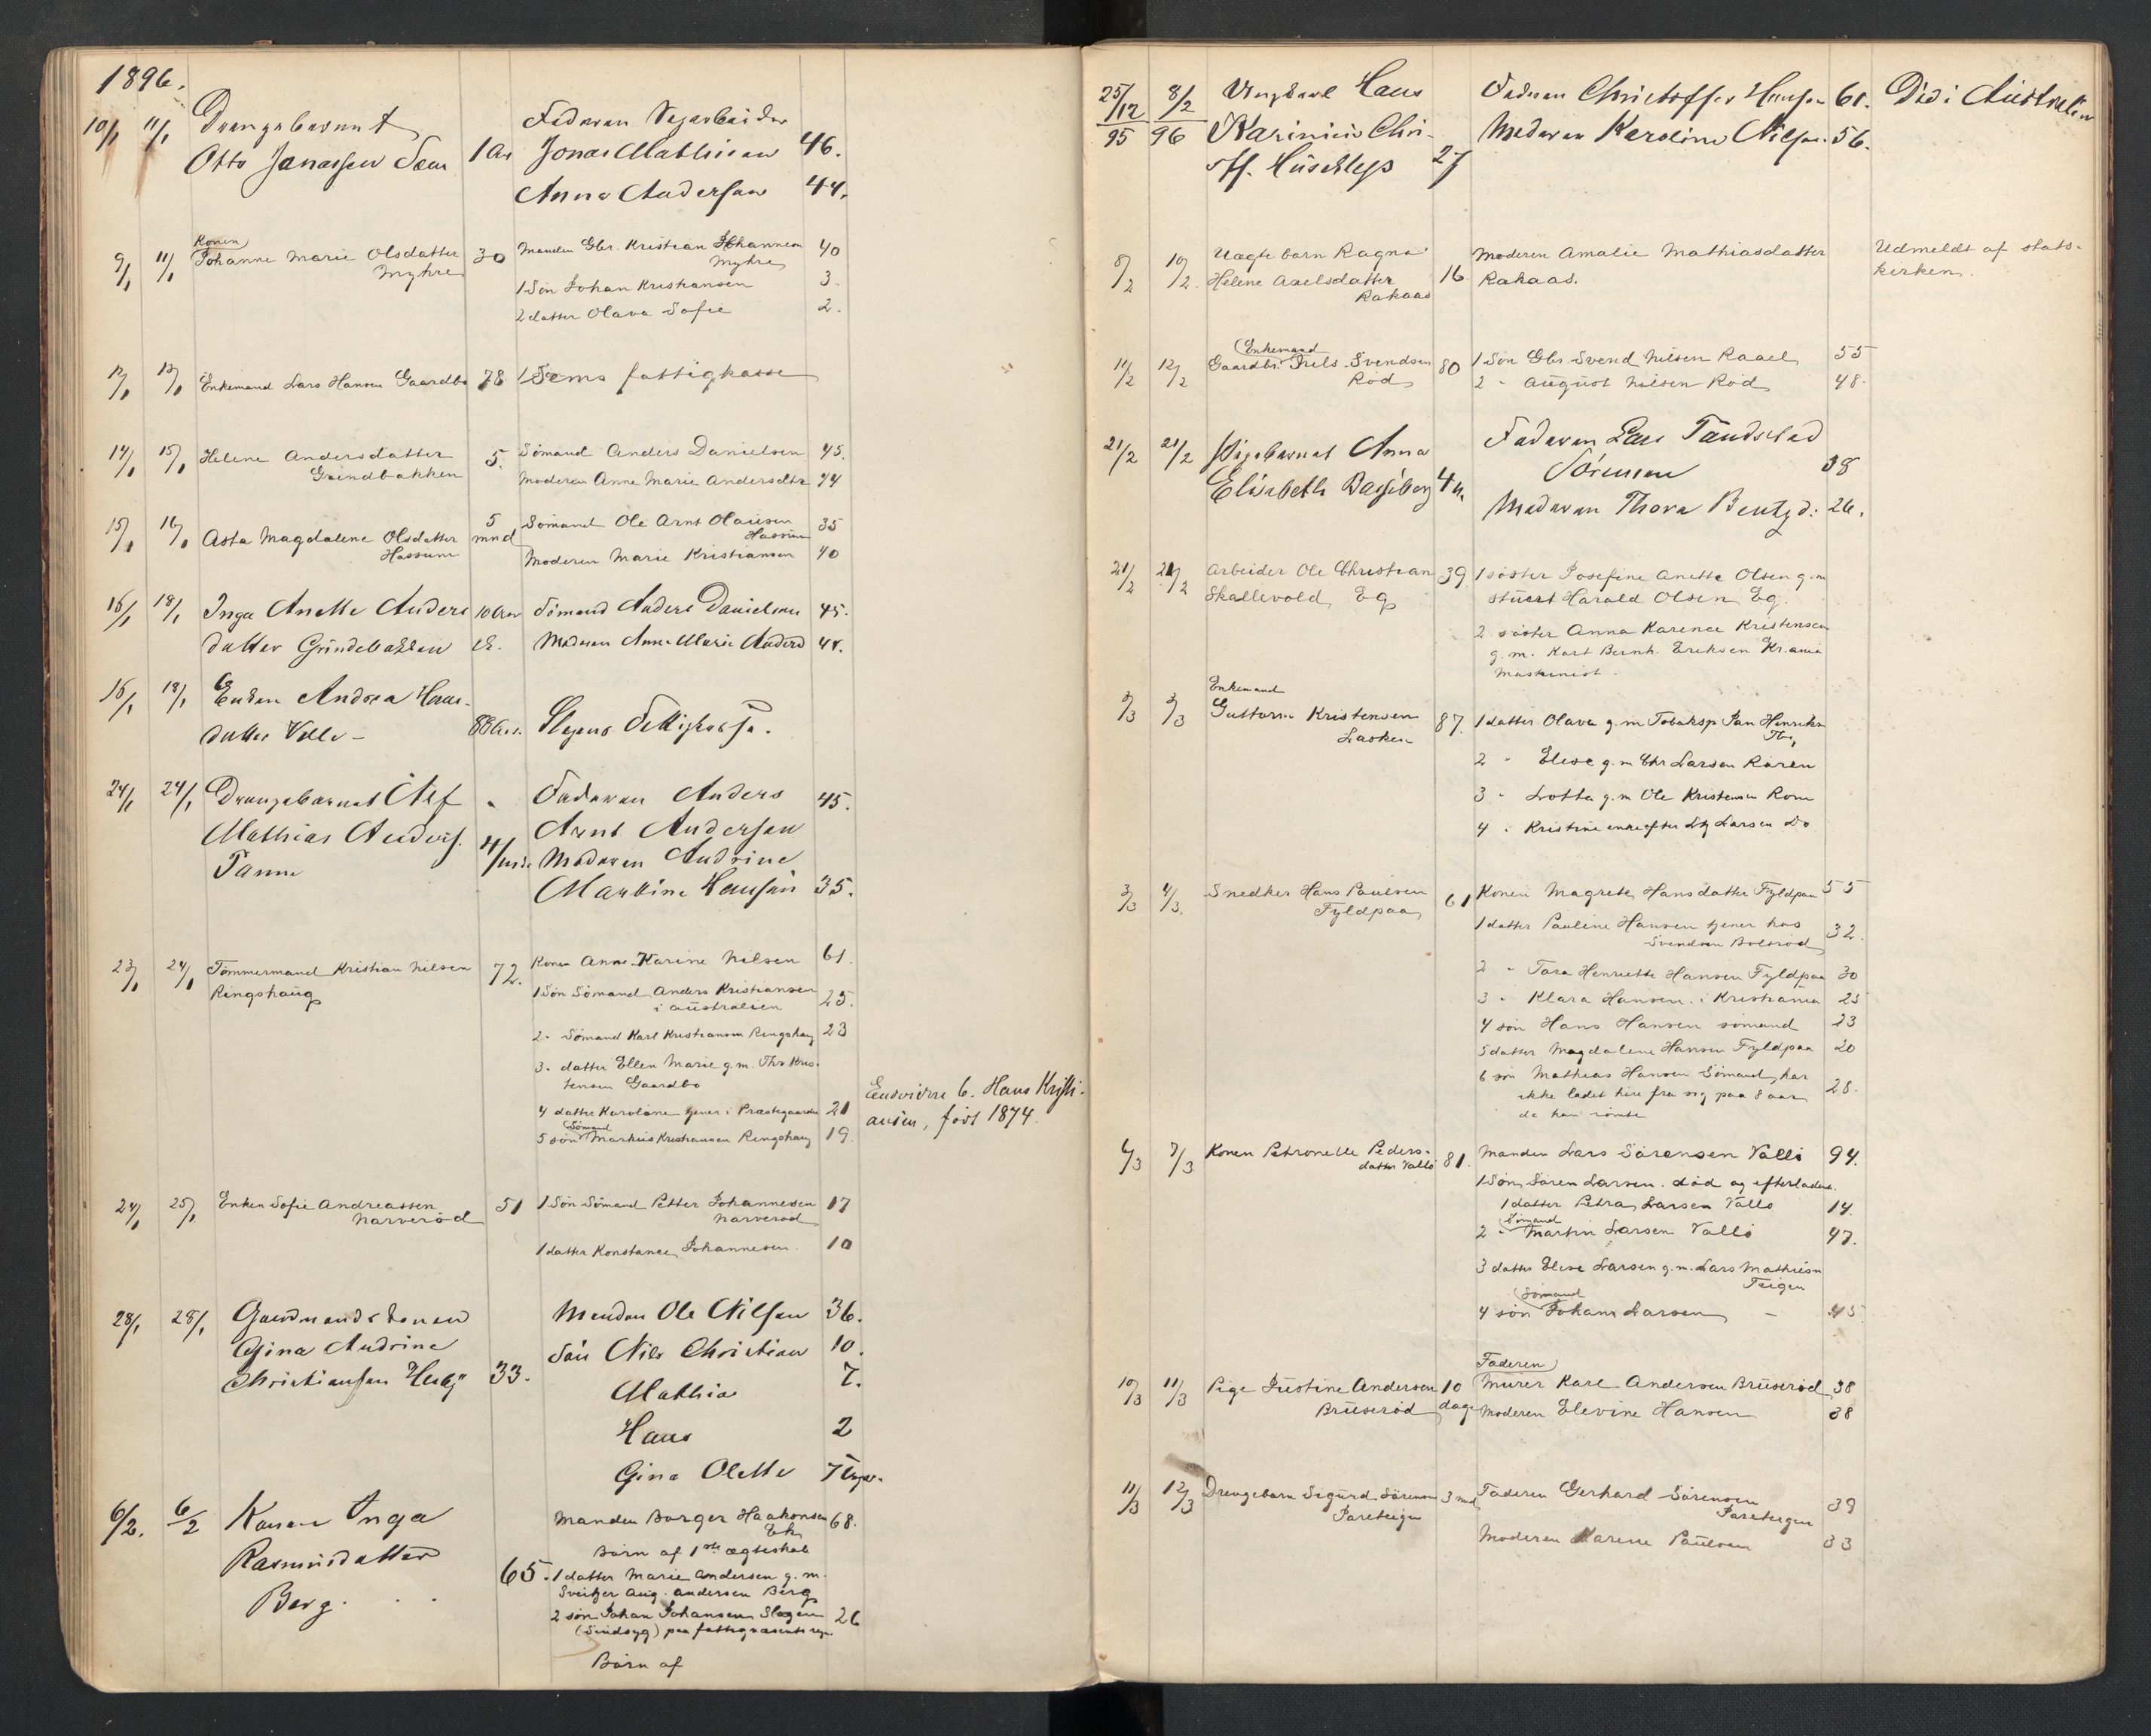 1896.
10/1 11/1 Drengebarnet
Otto Jonassen Sem 1 Aar
Faderen Vejarbeider
Jonas Mathisen 46.
Anna Andersen 44.
9/1 11/1 Konen
Johanne Marie Olsdatter 30
Myhre
Manden Gbr. Kristian Johannesen 40
Myhre
1 Søn Johan Kristiansen 3.
2 datter Olava Sofie 2.
12/1 13/1 Enkemand Lars Hansen Gaardbo 78 Sems fattigkasse
14/1 15/1 Helene Andersdatter 5.
Grindbakken
Sømand Anders Danielsen 45.
Moderen Anne Marie Andersdtr 44
15/1 16/1 Asta Magdalene Olsdatter 5 mnd
Hassum
Sømand Ole Arnt Olausen 35
Hassum
Moderen Marie Kristiansen 40
16/1 18/1 Inga Anette Anders 10 Aar
datter Grindebakken
Sømand Anders Danielsen 45.
Moderen Anne Marie Andersd 44.
16/1 18/1 Enken Andrea Hans-
datter 88 Aar. Slagens Fattigkasse.
24/1 24/1 Drengebarnet Alf
Mathias Anders.
Faderen Anders 45.
Arnt Andersen
Moderen Andrine
Martine Hansen 35.
23/1 24/1 Tømmermand Kristian Nilsen 72.
Ringshaug
Konen Anne Karine Nilsen 61.
1 Søn Sømand Anders Kristiansen 25.
i Australien
2 - Sømand Karl Kristiansen Ringshaug 23
3. datter Ellen Marie g.m. Thv Kris-
tensen Gaardbo
4 datter Karoline tjener i Præstegaarden 21
Sømand
5 søn Markus Kristiansen Ringshaug 19.
Endvidere 6. Hans Kristi-
ansen, født 1874.
24/1 25/1 Enken Sofie Andreassen 51
Narverød
1 Søn Sømand Petter Johannesen 17
Narverød
1 datter Konstance Johannesen 10
28/1 28/1 Gaardmandskonen
Gina Andrine
Christiansen 33.
Manden Ole Nilsen 36.
Søn Nils Christian 10.
Mathia 7.
Hans 2
Gina Olette 7
6/2. 6/2 Konen Inga
Rasmusdatter 65.
Berg.
Manden Borger Haakonsen 68.
Ek
Børn af 1ste ægteskab
1 datter Marie Andersen g.m.
Sveitzer Aug. Andersen Berg
2 søn Johan Johansen Slagen 26
(Sindsyg) paa fattigvæsenets regn.
Børn af
25/12 95 8/2 96 Ungkarl Hans
Karinius Chri-
stf. Husklep 27
Faderen Christoffer Hansen 61.
Moderen Karoline Nilsen. 56.
Død i Australien
8/2 10/2. Uægte barn Ragna 16
Helene Axelsdatter
Rakaas
Moderen Amalie Mathiasdatter
Rakaas.
Udmeldt af stats-
kirken.
11/2 12/2 Enkemand
Gaardbr. Niels Svendsen 80
Rød
1 Søn Gbr. Svend Nilsen Raael 55
2 - August Nilsen Rød 48.
21/2 21/2 Pigebarnet Anna
Elisabeth
Faderen Lars
Sørensen 38
Moderen Thora Bentzd: 26.
21/2 21/2 Arbeider Ole Christian 39
Skallevold, Eg
1 søster Josefine Anette Olsen g.m
stuert Harald Olsen Eg.
2 søster Anna Karence Kristensen
g.m. Kart Bernh. Eriksen Kr.ania
Maskinist.
3/3 3/3 Enkemand
Guttorm Kristensen 87.
Lasken
1 datter Olava g.m Tobaksp Jan Henriksen
Tbg
2 - Elise g.m Chr Larsen Raren
3 - Lotta g.m Ole Kristensen Rom
4 - Kristine enke efter Larsen Do
3/3 4/3. Snedker Hans Paulsen 61
Fyldpaa
Konen Magrete Hansdatter Fyldpaa 55
1 datter Pauline Hansen tjener hos 32.
Svendsen Bolsrød
2 - Tara Henriette Hansen Fyldpaa 30
3 - Klara Hansen i Kristiania 25
4 søn Hans Hansen sømand 23
5 datter Magdalene Hansen Fyldpaa 20
6 søn Mathias Hansen Sømand, har 28.
ikke ladet høre fra sig paa 8 aar
da han rømte
6/3 7/3 Konen Petronelle Peders- 81.
datter Vallø
Manden Lars Sørensen Vallø 94.
1 Søn Søren Larsen. død og efterladere.
1 datter Petra Larsen Vallø 14.
Sømand
2 - Martin Larsen Vallø 47.
3 datter Elise Larsen g.m. Lars Mathisen
Teigen
Sømand
4 søn Johan Larsen - 45
10/3 11/3 Pige Justine Andersen 10 dage
Bruserød
Faderen
Murer Karl Andersen Bruserød 38
Moderen Elevine Hansen 38
11/3 12/3 Drengebarn Sigurd Sørensen 3 md
Pareteigen
Faderen Gerhard Sørensen 39
Pareteigen
Moderen Karene Paulsen 33